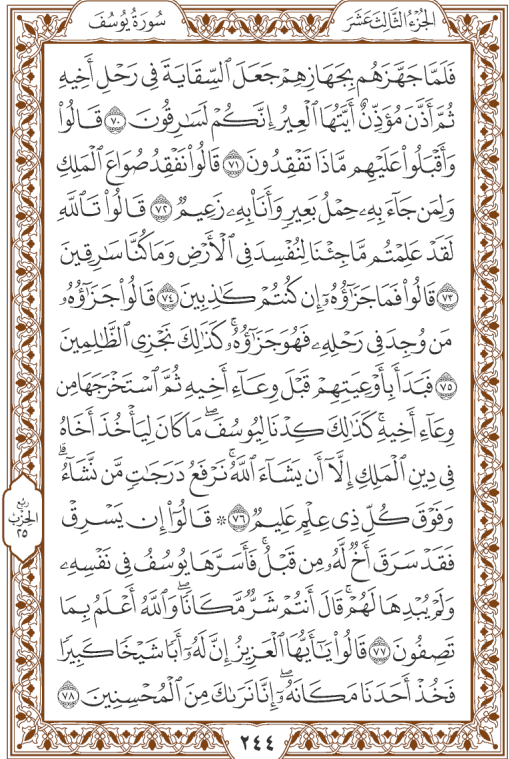 الجُزْءُ الثَّالِثَ عَشَرَ
سُورَةُ يُوسُفَ
فَلَمَّا جَهَّزَهُم بِجَهَازِهِمْ جَعَلَ ٱلسِّقَايَةَ فِى رَحْلِ أَخِيهِ
ثُمَّ أَذَّنَ مُؤَذِّنٌ أَيَّتُهَا ٱلْعِيرُ إِنَّكُمْ لَسَٰرِقُونَ ٧٠ قَالُوا۟
وَأَقْبَلُوا۟ عَلَيْهِم مَّاذَا تَفْقِدُونَ ٧١ قَالُوا۟ نَفْقِدُ صُوَاعَ ٱلْمَلِكِ
وَلِمَن جَآءَ بِهِۦ حِمْلُ بَعِيرٍ وَأَنَا۠ بِهِۦ زَعِيمٌ ٧٢ قَالُوا۟ تَٱللَّهِ
لَقَدْ عَلِمْتُم مَّا جِئْنَا لِنُفْسِدَ فِى ٱلْأَرْضِ وَمَا كُنَّا سَٰرِقِينَ
٧٣ قَالُوا۟ فَمَا جَزَٰٓؤُهُۥٓ إِن كُنتُمْ كَٰذِبِينَ ٧٤ قَالُوا۟ جَزَٰٓؤُهُۥ
مَن وُجِدَ فِى رَحْلِهِۦ فَهُوَ جَزَٰٓؤُهُۥ ۚ كَذَٰلِكَ نَجْزِى ٱلظَّٰلِمِينَ
٧٥ فَبَدَأَ بِأَوْعِيَتِهِمْ قَبْلَ وِعَآءِ أَخِيهِ ثُمَّ ٱسْتَخْرَجَهَا مِن
وِعَآءِ أَخِيهِ ۚ كَذَٰلِكَ كِدْنَا لِيُوسُفَ ۖ مَا كَانَ لِيَأْخُذَ أَخَاهُ
فِى دِينِ ٱلْمَلِكِ إِلَّآ أَن يَشَآءَ ٱللَّهُ ۚ نَرْفَعُ دَرَجَٰتٍ مَّن نَّشَآءُ ۗ
وَفَوْقَ كُلِّ ذِى عِلْمٍ عَلِيمٌ ٧٦ ۞ قَالُوٓا۟ إِن يَسْرِقْ
فَقَدْ سَرَقَ أَخٌ لَّهُۥ مِن قَبْلُ ۚ فَأَسَرَّهَا يُوسُفُ فِى نَفْسِهِۦ
وَلَمْ يُبْدِهَا لَهُمْ ۚ قَالَ أَنتُمْ شَرٌّ مَّكَانًا ۖ وَٱللَّهُ أَعْلَمُ بِمَا
تَصِفُونَ ٧٧ قَالُوا۟ يَٰٓأَيُّهَا ٱلْعَزِيزُ إِنَّ لَهُۥٓ أَبًا شَيْخًا كَبِيرًا
فَخُذْ أَحَدَنَا مَكَانَهُۥٓ ۖ إِنَّا نَرَىٰكَ مِنَ ٱلْمُحْسِنِينَ ٧٨
ربع
الحزب
٢٥
٢٤٤